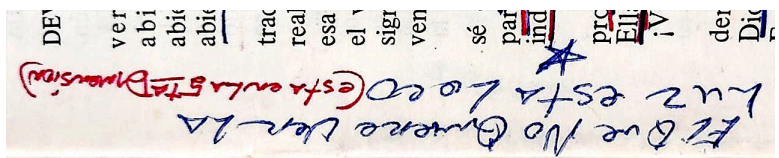 DEV
ver
abi
abie
abie
trac
real
esa
el
sign
ven
sé
par
ind
pro
Ella
¡V
der
Dic
El Que No Quiere Ver La
Luz esta Loco (esta en La 5ta Dimensión)